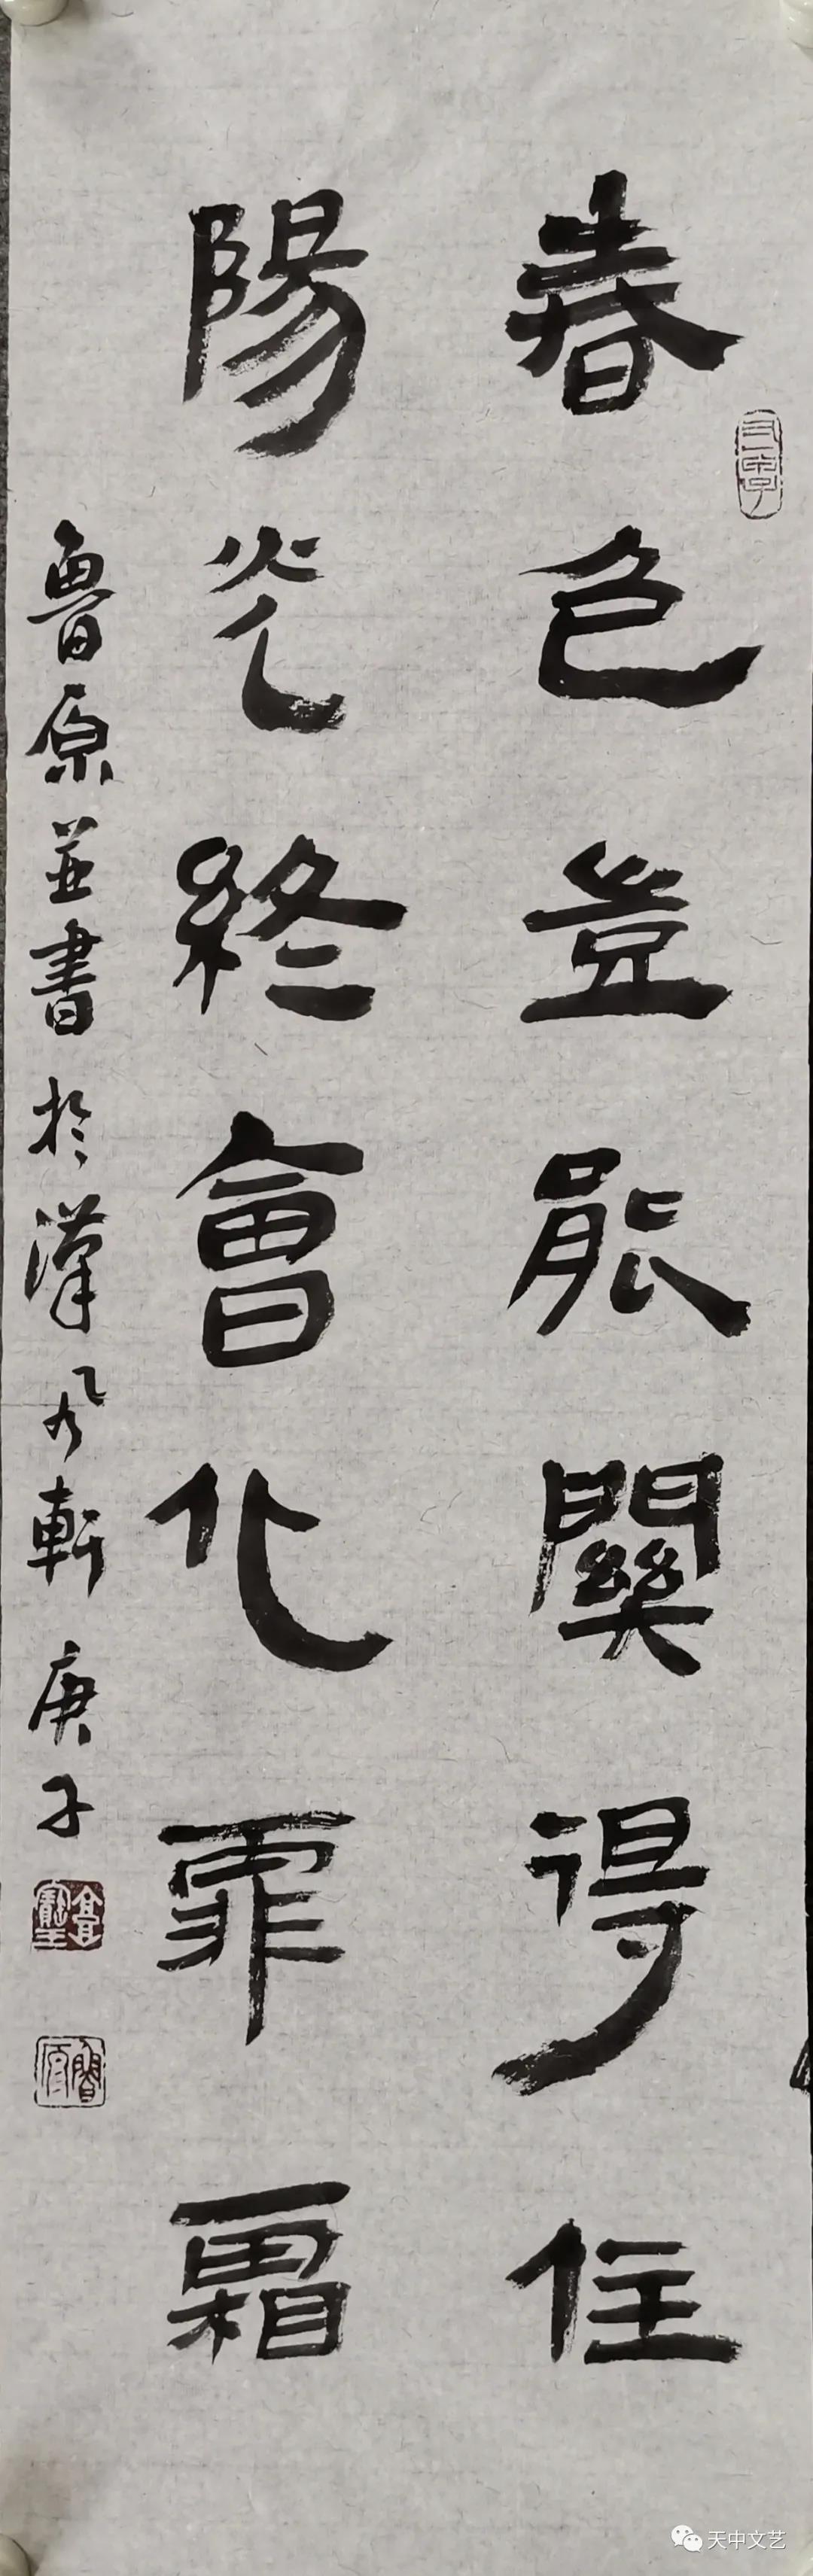 春色豈能關得住
陽光終會化霏霜
魯原並書於漢風軒庚子
天中文艺